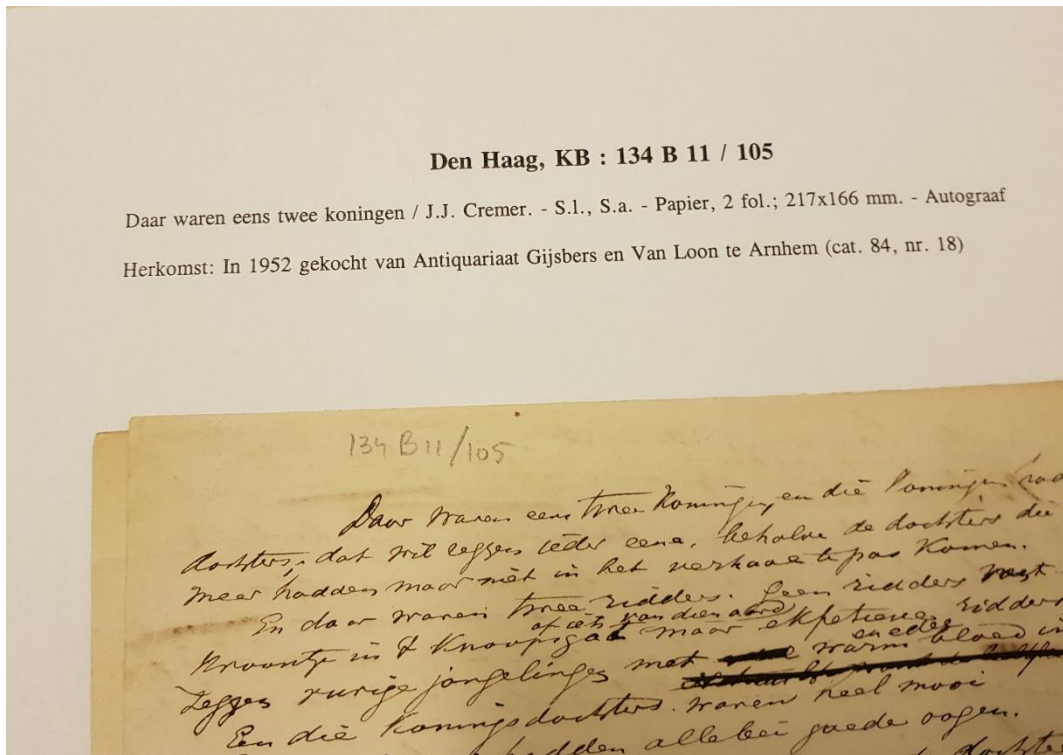 Den Haag, KB : 134 B 11 / 105
Daar waren eens twee koningen / J.J. Cremer. - S.l., S.a. - Papier, 2 fol.; 217x166 mm. - Autograaf
Herkomst: In 1952 gekocht van Antiquariaat Gijsbers en Van Loon te Arnhem (cat. 84, nr. 18)
134 B 11/105
Daar waren eens twee Koningen, en die Koningen
dochters; dat wil zeggen ieder eene, behalve de dochters die
meer hadden maar niet in het verhaal te pas komen.
En daar waren twee ridders. Geen ridders
of iets van dien aard
Kroontje in 't Knoopsgat maar ridders
en edel
zeggen jongelingen met warm bloed in
En die Koningsdochters waren heel mooi
hadden allebei goede oogen.